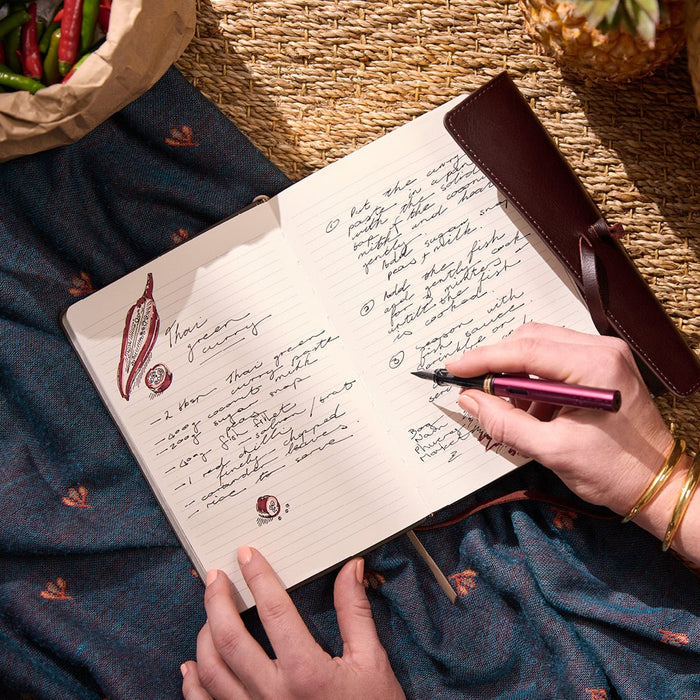 Thai
green
curry
- 2 tbsp Thai green
curry paste
- 400g coconut milk
- 200g sugar snap
peas
- 400g fish fillet
- 1 red chilli
finely chopped
- coriander leaves
- rice to serve.
① Put the curry
paste in a pan
with the solid
top of the coconut
milk and heat
gently.
Add sugar snap
peas + milk.
② Add the fish
and gently cook
for minutes
until the fish
is cooked.
③ Season with
fish sauce.
Sprinkle
Market